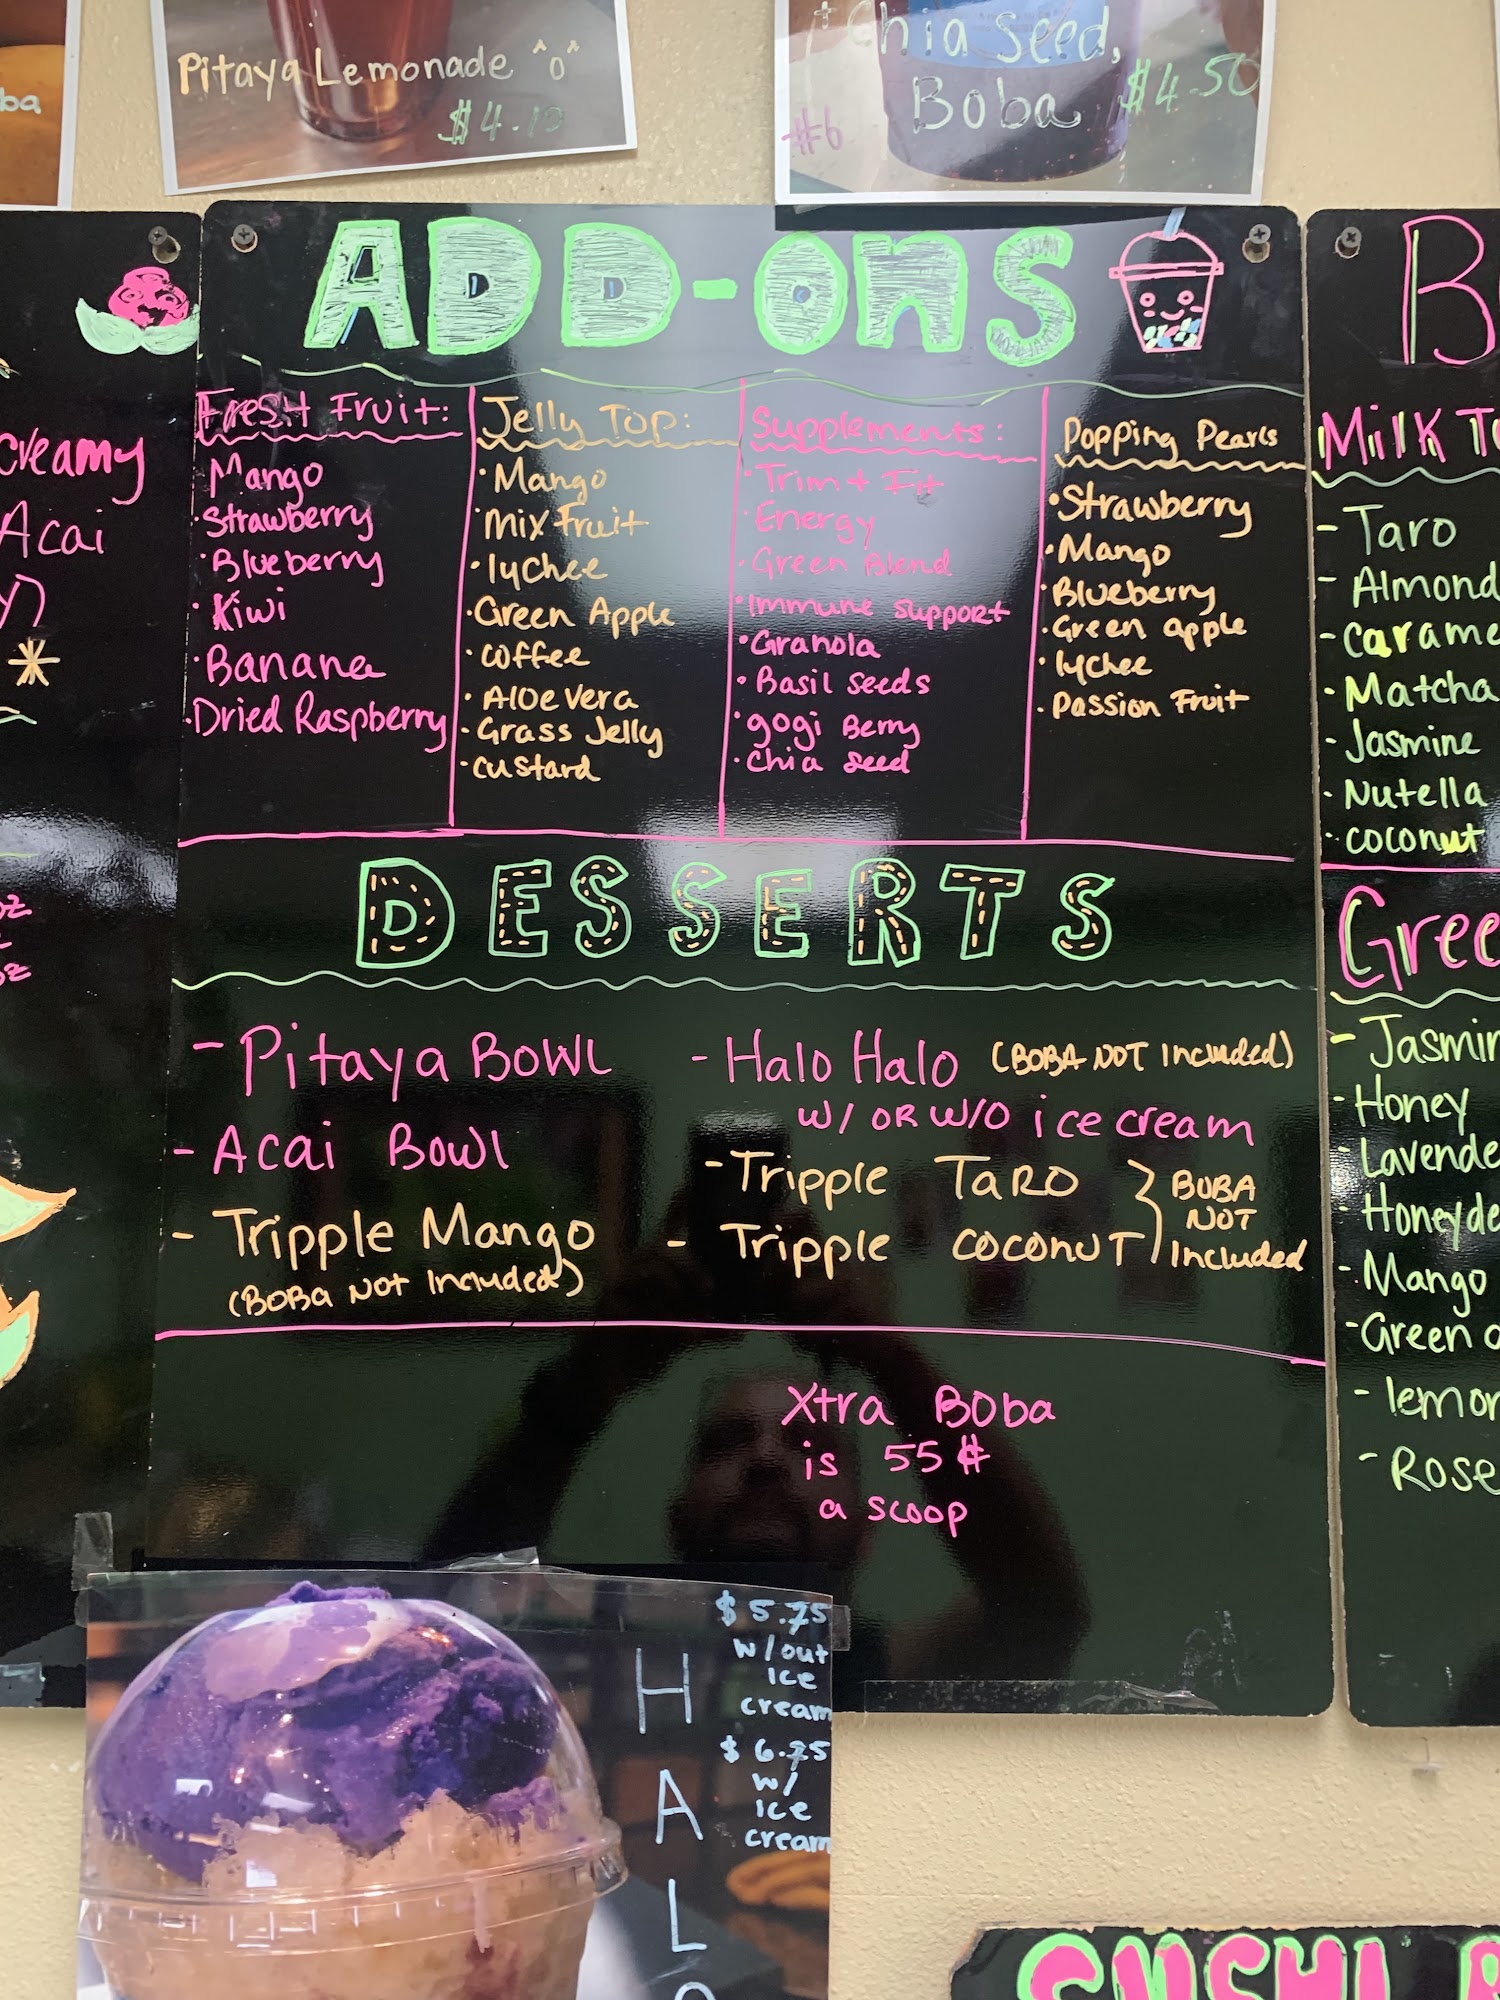 ba
Pitaya Lemonade
+ Chia Seed,
Boba
$4.50
#6
ADD-ONS
Fresh Fruit:
Mango
· Strawberry
· Blueberry
· Kiwi
· Banana
· Dried Raspberry
Jelly Top:
· Mango
· Mix Fruit
· lychee
· Green Apple
· coffee
· Aloe Vera
· Grass Jelly
· custard
Supplements:
· Trim + Fit
· Energy
· Green Blend
· Immune support
· Granola
· Basil seeds
· gogi Berry
· Chia seed
Popping Pearls
· Strawberry
· Mango
· Blueberry
· Green apple
· lychee
· Passion Fruit
DESSERTS
- Pitaya Bowl
- Acai Bowl
- Tripple Mango
(Boba Not Included)
- Halo Halo (BOBA NOT Included)
w/ OR w/o ice cream
- Tripple TARO
- Tripple coconut
BOBA
NOT
Included
Xtra Boba
is 55¢
a scoop
$5.75
w/out
Ice
cream
$6.75
w/
Ice
cream
H
A
L
creamy
Acai
y)
*
oz
oz
B
Milk T
- Taro
- Almond
- Carame
- Matcha
- Jasmine
- Nutella
- coconut
Gree
- Jasmin
- Honey
- Lavende
- Honeyde
- Mango
- Green a
- lemon
- Rose
SUSHI